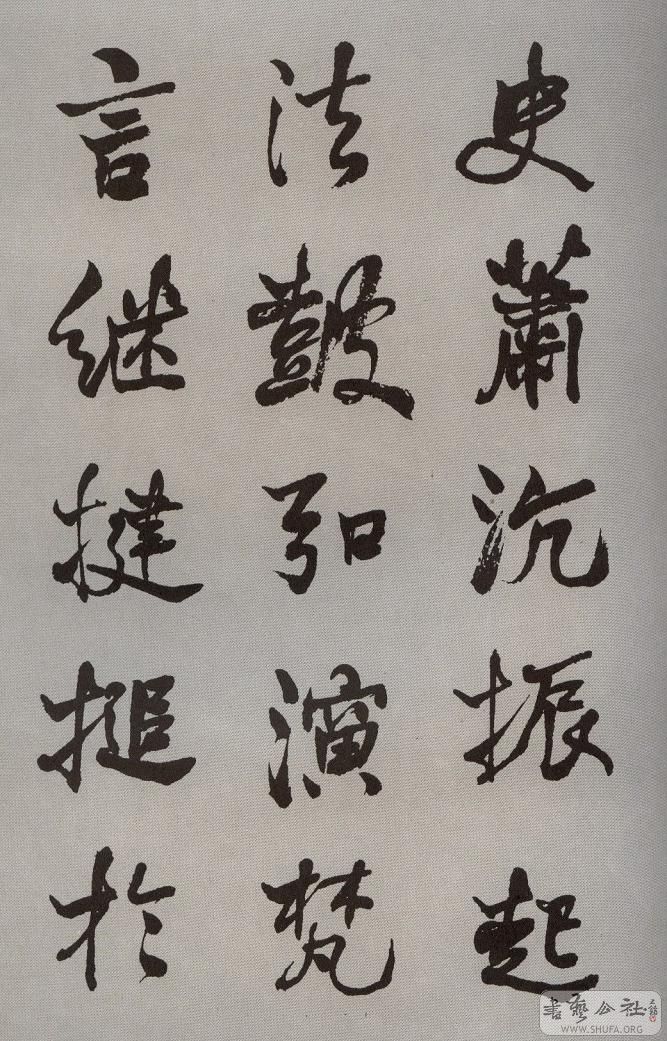 史蕭沉振起
法鼓弘演梵
言继揵搥於
書藝公社
WWW.SHUFA.ORG